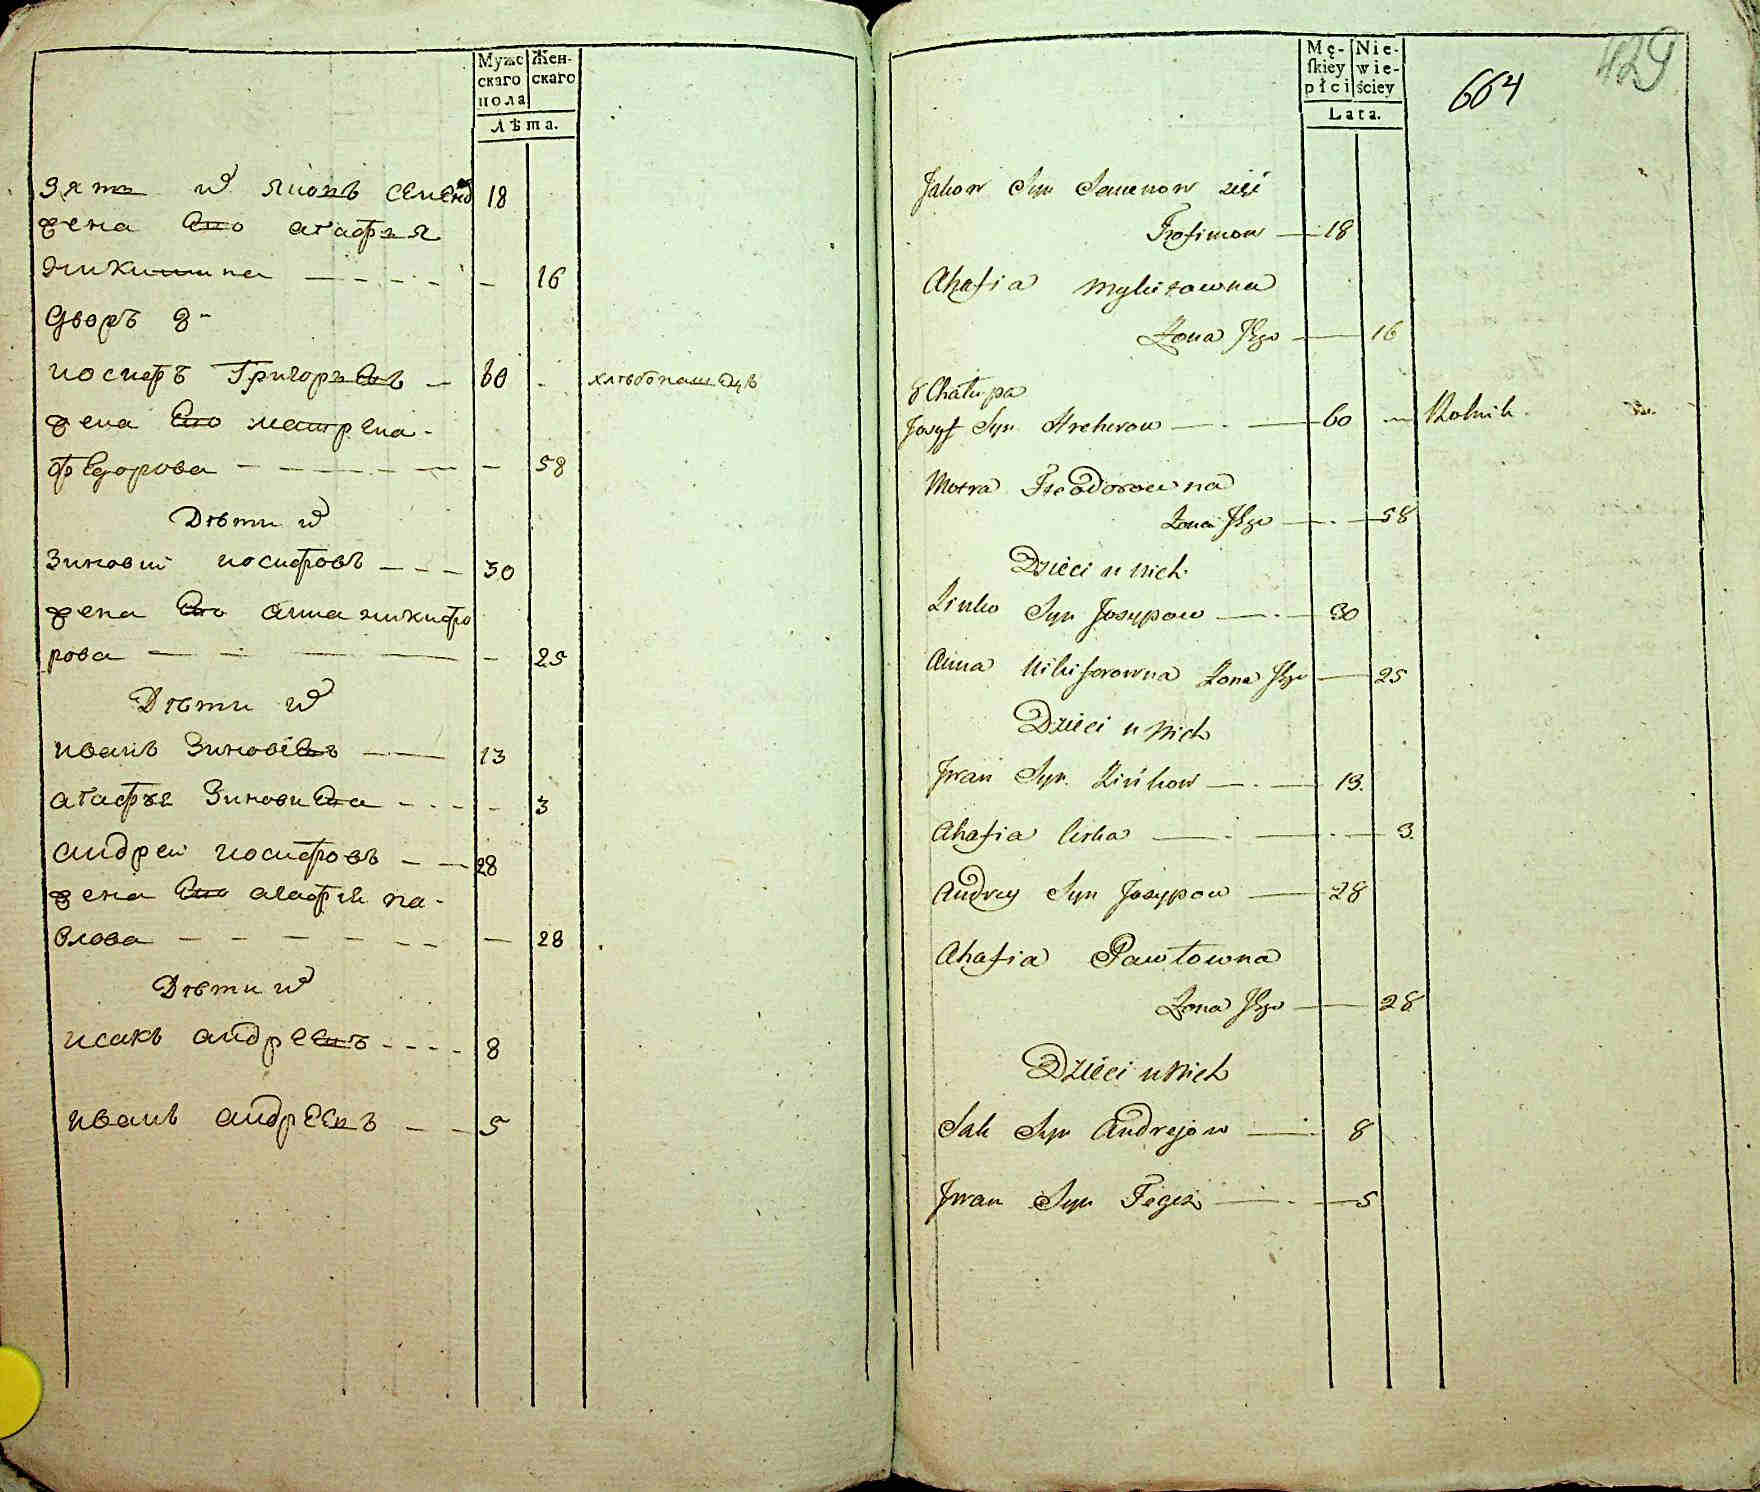 Мужс
скаго
пола
Жен-
скаго
Лѣта.
зять их яковъ семено
жена его агафия
никитина — — — — 16
дворъ 8-
иосифъ Григорьевъ — 60 - хлѣбопашецъ
жена его матрена-
федорова — — — — — 58
Дѣти их
Зиновии иосифовъ — — — 30
жена его анна никифо
рова — — — — — 25
Дѣти их
иванъ Зиновіевъ — — 13
агафья Зиновиева — — — 3
андреи иосифовъ — — 28
жена его агафия па-
влова — — — — — — 28
Дѣти их
исакъ андреевъ - - - - 8
иванъ андреевъ — — 5
Mę-
ſkiey
płci
Nie-
wie-
ściey
Lata.
664
429
Jakow Syn Semenow zięć
Trofimow — 18
Ahafia Mykitowna
Żona Jego — 16
8 Chałupa
Josyf Syn Hrehorow — . — 60 — Rolnik.
Motra Fteodorowna
Żona Jego — . — 58
Dzieci u Nich
Zinko Syn Josypow — . — 30
Anna Nikiforowna Żona Jego — 25
Dzieci u Nich
Jwan Syn Zińkow — . — 13.
Ahafia Curka — . — . — 3
Andrey Syn Josypow — 28
Ahafia Pawłowna
Żona Jego — 28
Dzieci u Nich
Sak Syn Andrejow — 8
Jwan Syn Tegoż — . — 5